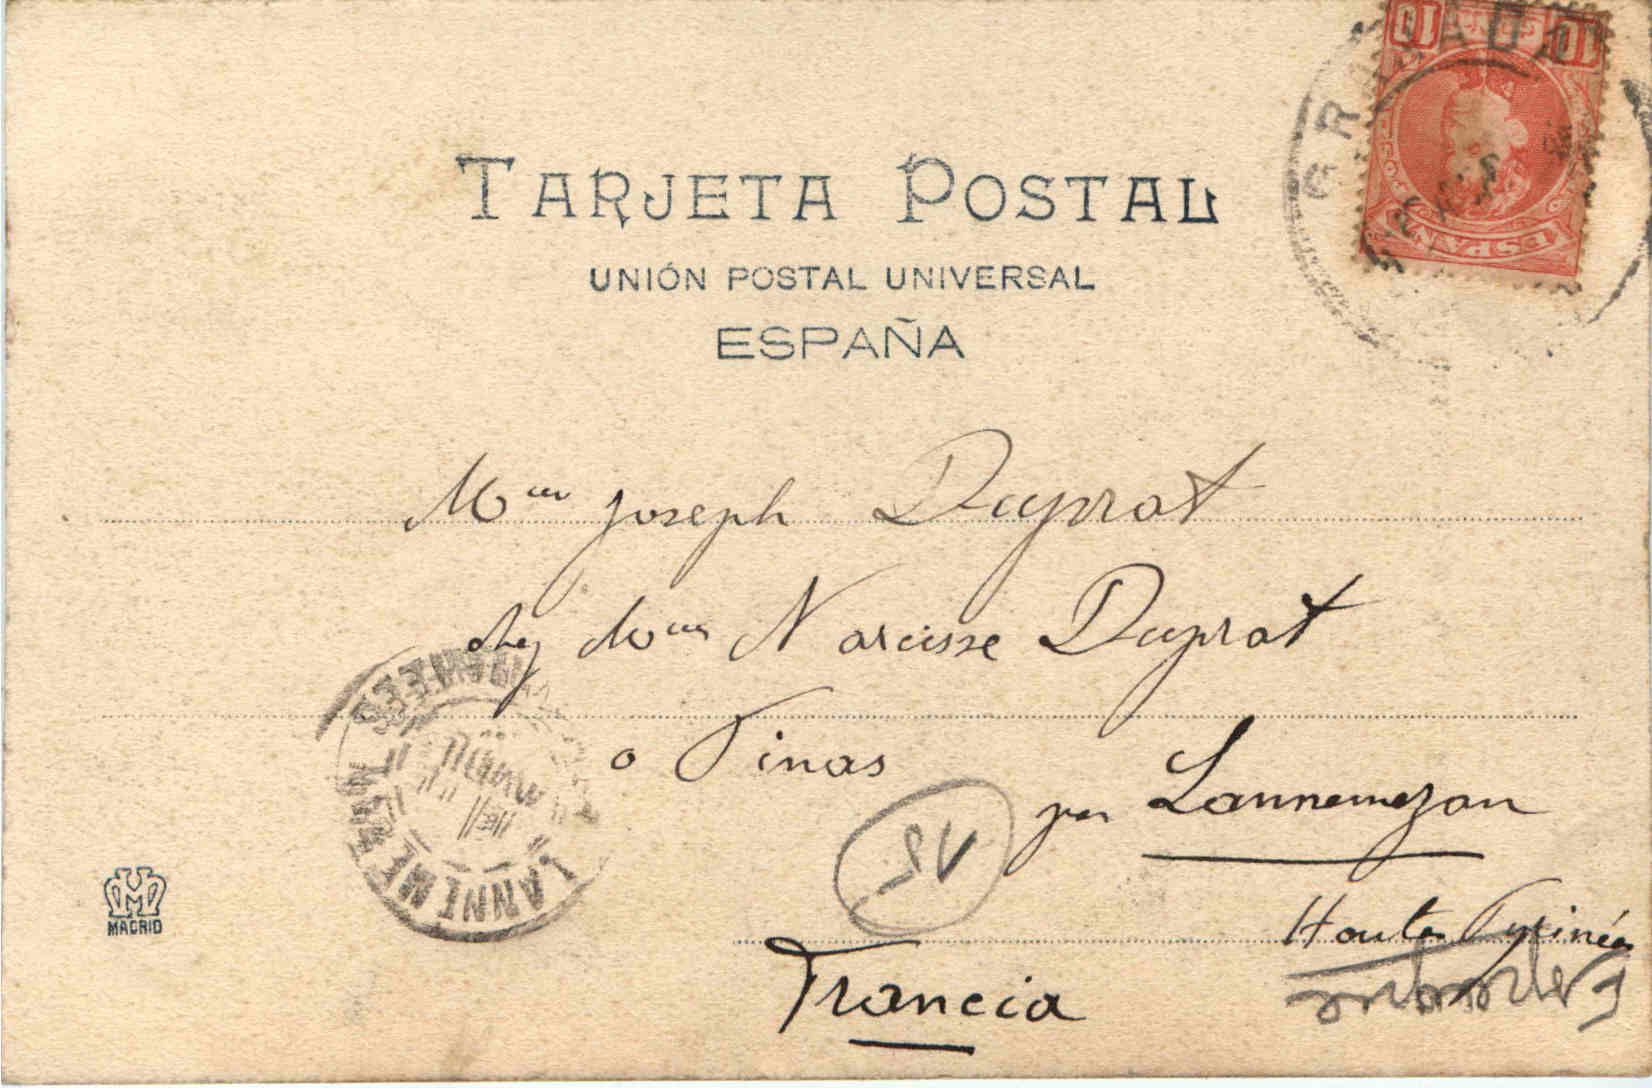 TARJETA POSTAL
UNIÓN POSTAL UNIVERSAL
ESPAÑA
10 10
ESPAÑA
GRANADA
Joseph Duprat
chez Narcisse Duprat
Pinas
par Lannemezan
Hautes Pyrénées
Francia
15
LANNEMEZAN
MADRID